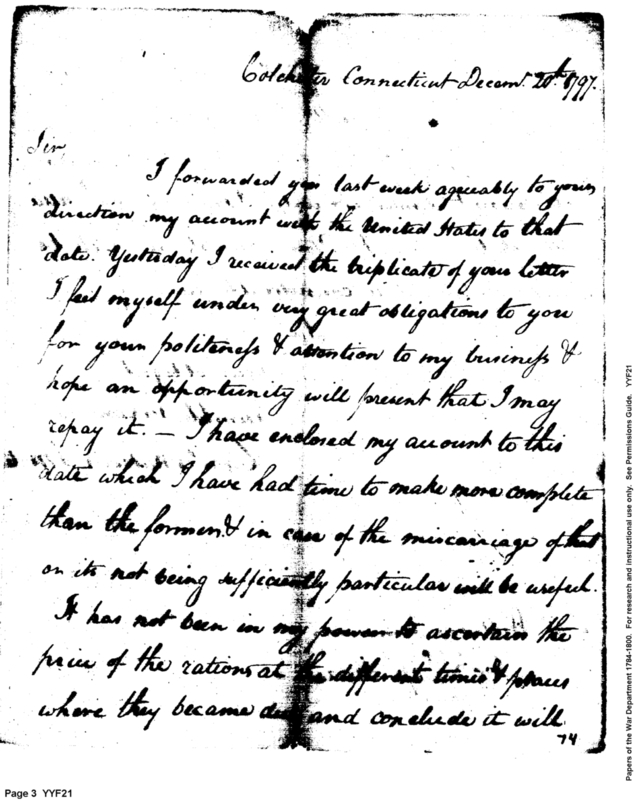 Colchester Connecticut Decemr. 20th 1797.
Sir,
I forwarded you last week agreeably to your
direction my account with the United States to that
date. Yesterday I received the triplicate of your letter
I feel myself under very great obligations to you
for your politeness & attention to my business &
hope an opportunity will present that I may
repay it. — I have enclosed my account to this
date which I have had time to make more complete
than the former & in case of the miscarriage of that
or its not being sufficiently particular will be useful.
It has not been in my power to ascertain the
price of the rations at the different times & places
where they became due and conclude it will
74
Page 3 YYF21
Papers of the War Department 1784-1800. For research and instructional use only. See Permissions Guide. YYF21